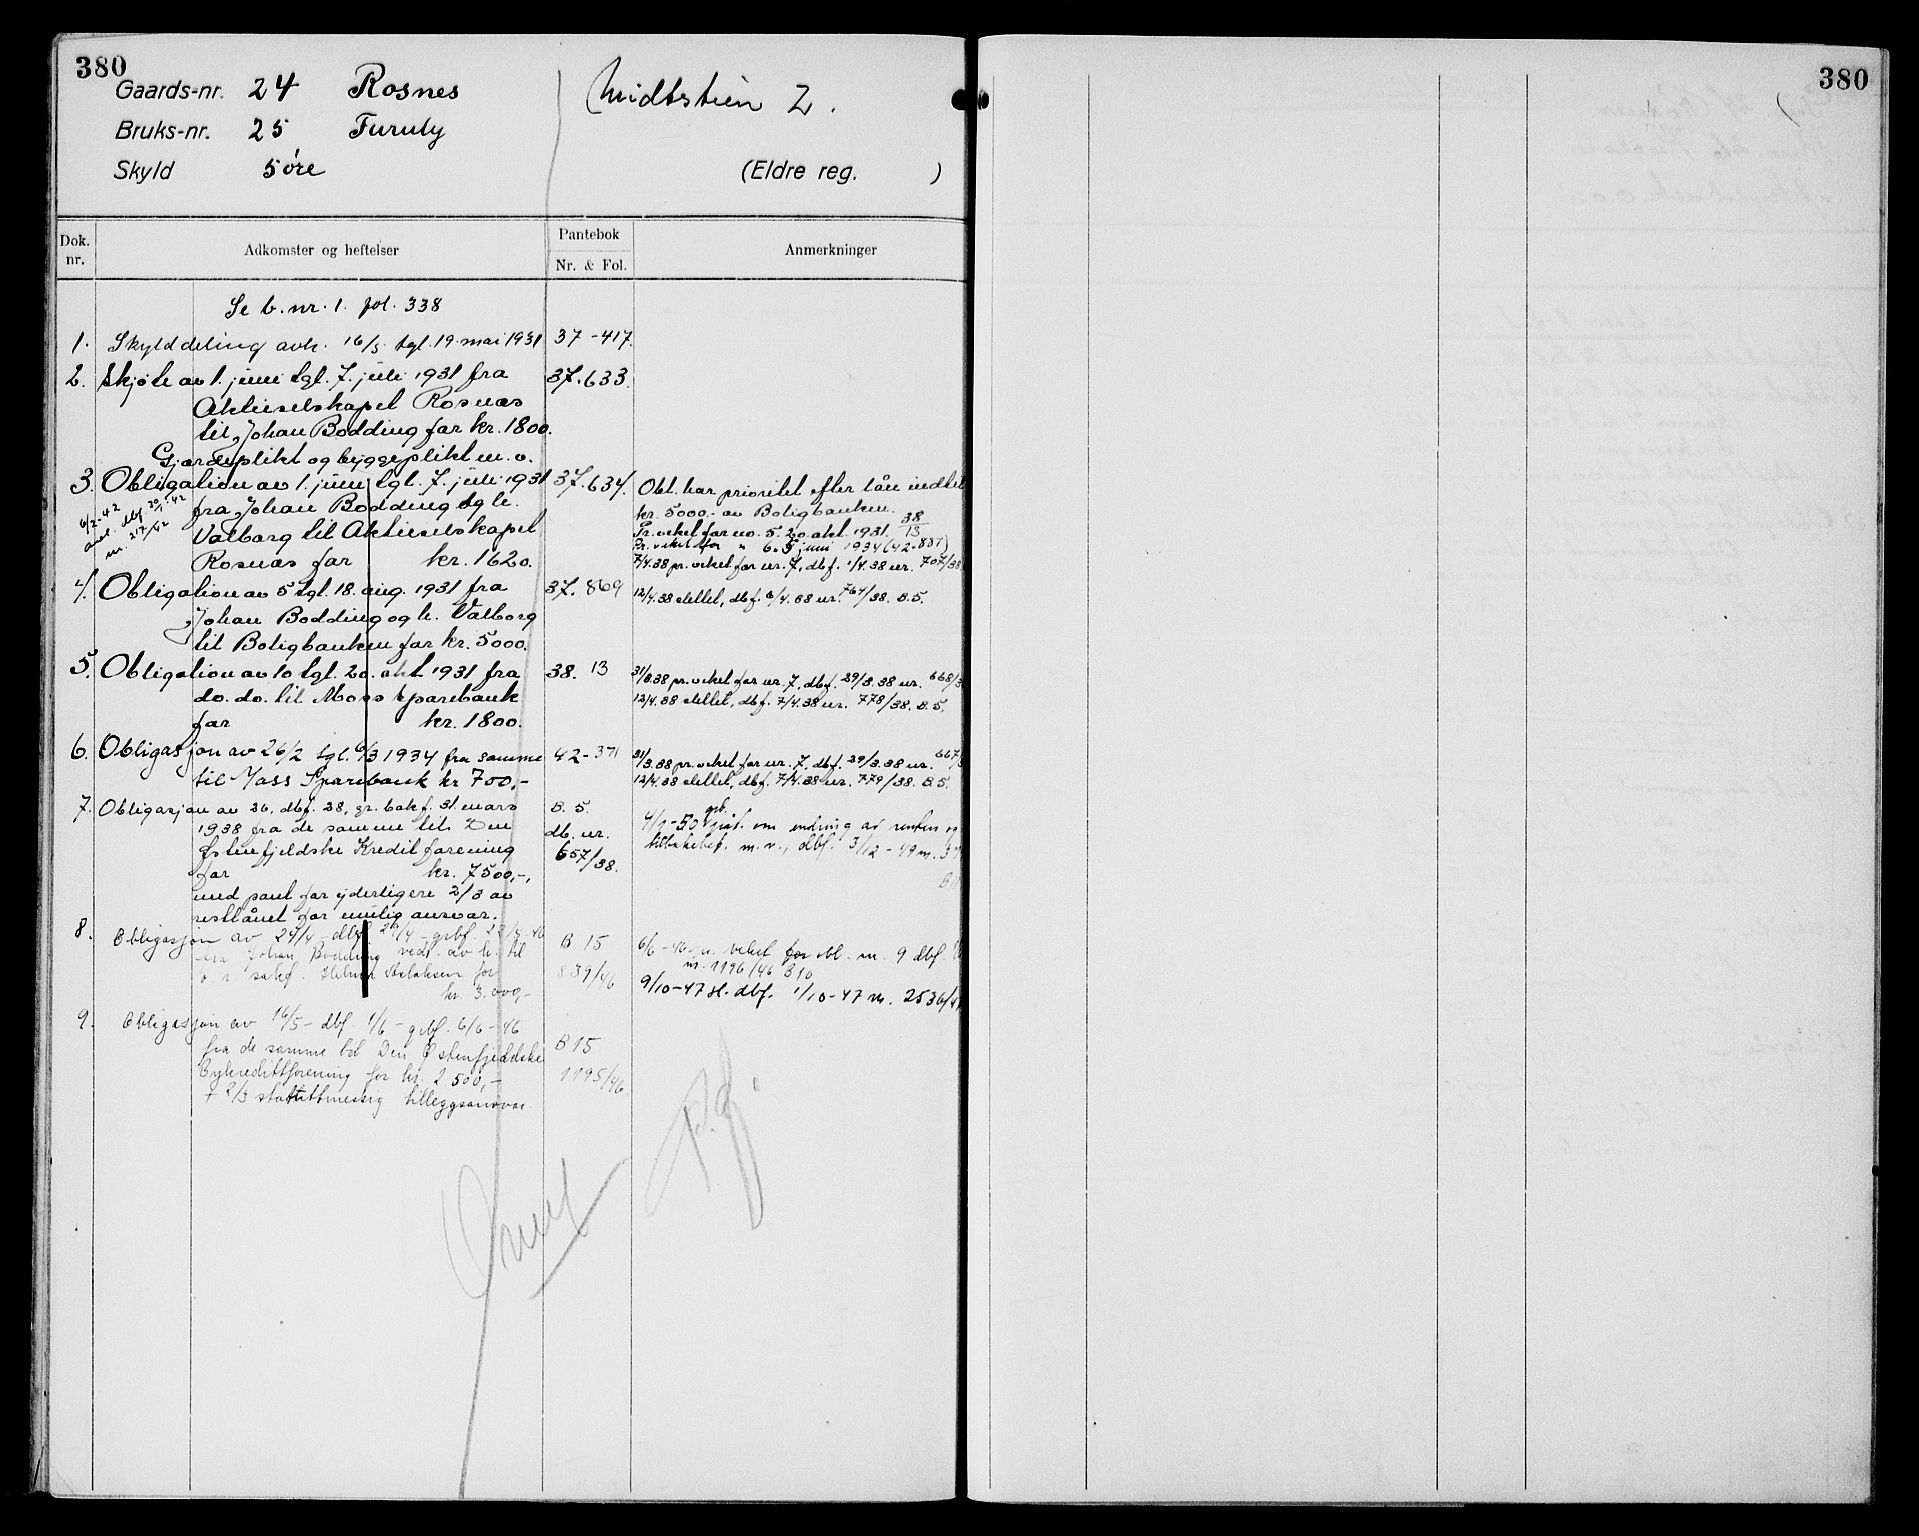 380
Gaards-nr. 24 Rosnes
Midtstien 2.
Bruks-nr. 25 Furuly
Skyld 5 øre
(Eldre reg. )
Dok. nr.
Adkomster og heftelser
Pantebok
Nr. & Fol.
Anmerkninger
Se b.nr. 1. fol. 338
1. Skylddeling avh. 16/5 tgl. 19 mai 1931 37-417.
2. Skjøte av 1. juni tgl. 7. juli 1931 fra 37.633.
Aktieselskapet Rosnæs
til Johan Bodding for kr. 1800.
Gjærdeplikt og byggeplikt m. v.
3. Obligation av 1. juni tgl. 7. juli 1931 37.634.
fra Johan Bodding og h.
Valborg til Aktieselskapet
Rosnæs for kr. 1620.
6/2-42
avl. dbf. 30/1-42
nr. 217/42
Obl. har prioritet efter lån indtil
kr. 5000.- av Boligbanken.
Pr. veket for no. 5. 20. okt. 1931. 38/13
Pr. veket for " 6. 5 juni 1934 (42-887)
7/4.38 pr. veket for nr. 7, dbf. 1/4.38 nr. 707/38
4. Obligation av 5 tgl. 18. aug. 1931 fra 37. 869
Johan Bodding og h. Valborg
til Boligbanken for kr. 5000.
12/4.38 slettet, dbf. 6/4.38 nr. 764/38. B.5.
5. Obligation av 10 tgl. 20. okt 1931 fra 38. 13
do. do. til Moss Sparebank
for kr. 1800.
31/3.38 pr. veket for nr. 7, dbf. 29/3.38 nr. 668/3
12/4.38 slettet, dbf. 7/4.38 nr. 778/38. B.5.
6. Obligasjon av 26/2 tgl. 6/3 1934 fra samme 42-371
til Moss Sparebank kr 700,-
31/3.38 pr. veket for nr. 7, dbf. 29/3.38 nr. 667/
12/4.38 slettet, dbf. 7/4.38 nr. 779/38. B.5.
7. Obligasjon av 26, dbf. 28, gr. bokf. 31 mars B. 5.
1938 fra de samme til Den db. nr.
Østenfjeldske Kreditforening 657/38.
for kr. 7500,-,
med pant for yderligere 2/3 av
restlånet for mulig ansvar.
4/1-50 gitt. om endring av renten og
tilbakebet. m. v., dbf. 3/12-49 nr. 3
B 11
8. Obligasjon av 24/4-dbf. 29/4-grbf. -46 B 15
fra Johan Bodding vedt. av h. til 839/46
o.r. sakf. Aslaksen for
kr. 3.000,-
6/6-46 pr. veket for obl. nr. 9 dbf.
nr. 1196/46 B10
9/10-47 sl. dbf. 1/10-47 nr. 2536/47
9. Obligasjon av 16/5- dbf. 1/6- grbf. 6/6-46 B 15
fra de samme til Den Østenfjeldske 1195/46
Bykredittforening for kr. 2 500,-
+ 2/3 statuttmessig tilleggsansvar
380